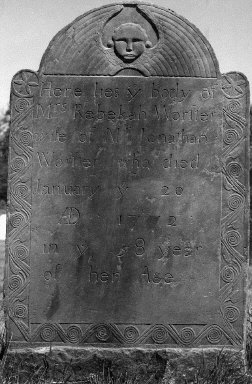 Here lies yᵉ body of
Mrs Rebekah Worster
wife of Mr Jonathan
Worster who died
January yᵉ 20
AD 1772
in yᵉ 58 year
of her Age